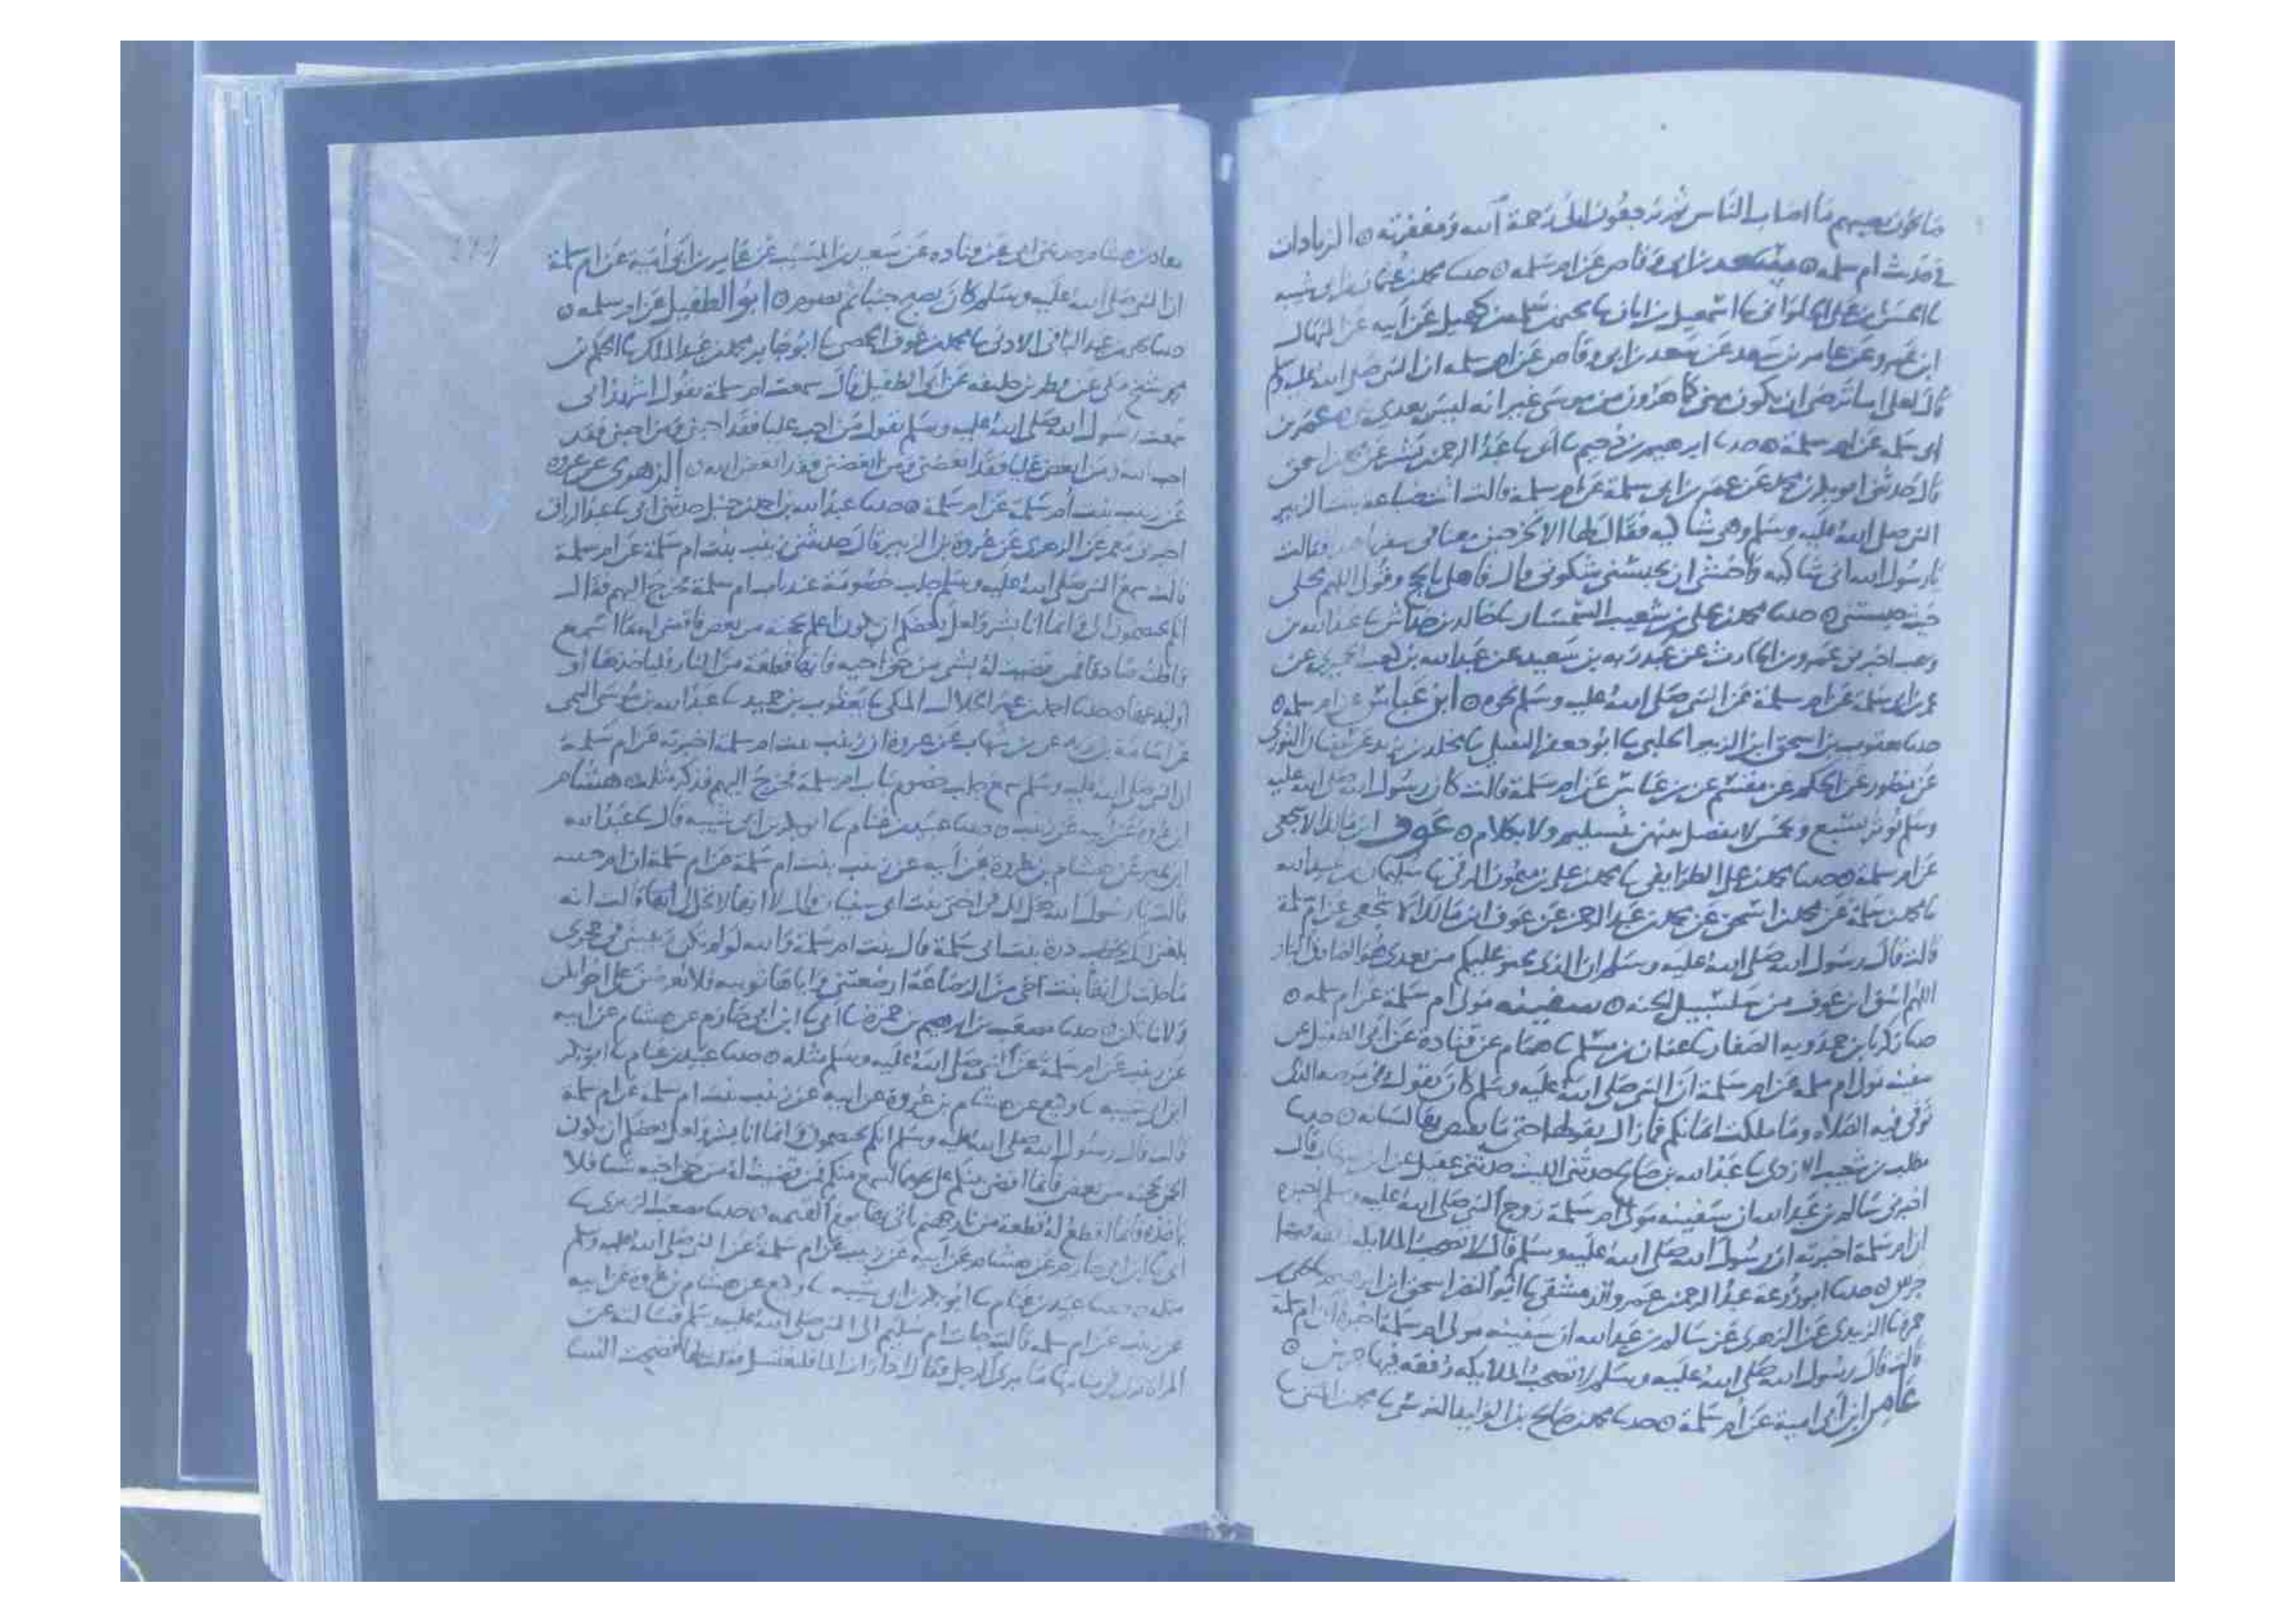 ما يكون يصيبهم ما اصاب الناس ثم يرجعون الى رحمة الله ومغفرته ه الزيادات
في حديث ام سلمه ه سعد بن ابي وقاص عن ام سلمه ه حدثنا محمد بن عثمان بن ابي شيبه
نا الحسن بن علي الحلواني نا اسمعيل بن ابان نا يحيى بن سلمة بن كهيل عن ابيه عن المنهال
ابن عمرو عن عامر بن سعد عن سعد بن ابي وقاص عن ام سلمه ان النبي صلى الله عليه وسلم
قال لعلي اما ترضى ان يكون مني كما هرون من موسى غير انه ليس بعدي نبي ه عمر بن
ابي سلمه عن ام سلمة ه حدثنا ابرهيم بن دحيم نا ابي نا عبد الرحمن بن بشر عن محمد بن اسحق
قال حدثني ابو بكر بن محمد عن عمر بن ابي سلمة عن ام سلمة قالت اتت ضباعة بنت الزبير
النبي صلى الله عليه وسلم وهي شاكيه فقال لها الا تخرجين معنا في سفرنا هذا فقالت
يا رسول الله اني شاكيه واخشى ان تحبسني شكوتي قال فاهلي بالحج وقولي اللهم محلي
حيث حبستني ه حدثنا محمد بن علي بن شعيب السمسار نا خالد بن خداش نا عبد الله بن
وهب اخبرني عمرو بن الحارث عن عبد ربه بن سعيد عن عبد الله بن كعب الحميري عن
عمر بن ابي سلمة عن ام سلمة عن النبي صلى الله عليه وسلم نحوه ه ابن عباس عن ام سلمه ه
حدثنا يعقوب بن اسحق ابن الزبير الحلبي نا ابو جعفر النفيلي نا مخلد بن يزيد عن سفيان الثوري
عن منصور عن الحكم عن مقسم عن بن عباس عن ام سلمة قالت كان رسول الله صلى الله عليه
وسلم يوتر بسبع وخمس لا يفصل بينهن بتسليم ولا بكلام ه عوف ابن مالك الاشجعي
عن ام سلمة ه حدثنا محمد بن علي الطرايفي نا محمد بن علي بن ميمون الرقي نا سليمان بن عبيد الله
نا محمد بن سلمة عن محمد بن اسحق عن محمد بن عبد الرحمن عن عوف ابن مالك الاشجعي عن ام سلمة
قالت قال رسول الله صلى الله عليه وسلم ان الذي يحنو عليكم من بعدي هو الصادق البار
اللهم اسق ابن عوف من سلسبيل الجنه ه سفينه مولى ام سلمة عن ام سلمه ه
حدثنا زكريا بن حمدويه الصفار نا عفان بن مسلم نا همام عن قتادة عن ابي الخليل عن
سفينه مولى ام سلمه عن ام سلمة ان النبي صلى الله عليه وسلم كان يقول في مرضه الذي
توفي فيه الصلاه وما ملكت ايمانكم فما زال يقولها حتى ما يفيض بها لسانه ه حدثنا
مطلب بن شعيب الازدي نا عبد الله بن صالح حدثني الليث حدثني عقيل عن ابن شهاب قال
اخبرني سالم بن عبد الله ان سفينه مولى ام سلمة زوج النبي صلى الله عليه وسلم اخبره
ان ام سلمة اخبرته ان رسول الله صلى الله عليه وسلم قال لا تصحب الملايكه رفقه فيها
جرس ه حدثنا ابو زرعة عبد الرحمن بن عمرو الدمشقي نا ابو النضر اسحق ابن ابرهيم نا يحيى بن
حمزة نا الزبيدي عن الزهري عن سالم بن عبد الله ان سفينه مولى ام سلمة اخبره ان ام سلمة
قالت قال رسول الله صلى الله عليه وسلم لا تصحب الملايكه رفقه فيها جرس ه
عامر ابن ابي امية عن ام سلمة ه حدثنا محمد بن صالح بن الوليد النرسي نا محمد بن المثنى نا
معاذ بن هشام حدثني ابي عن قتاده عن سعيد بن المسيب عن عامر بن ابي امية عن ام سلمة
ان النبي صلى الله عليه وسلم كان يصبح جنبا ثم يصوم ه ابو الطفيل عن ام سلمه ه
حدثنا يحيى بن عبد الباقي الاذني نا محمد بن عوف الحمصي نا ابو جابر محمد بن عبد الملك نا الحكم بن
محمد شيخ مكي عن فطر بن خليفه عن ابي الطفيل قال سمعت ام سلمة تقول اشهد اني
سمعت رسول الله صلى الله عليه وسلم يقول من احب عليا فقد احبني ومن احبني فقد
احب الله ومن ابغض عليا فقد ابغضني ومن ابغضني فقد ابغض الله ه الزهري عن عروه
عن زينب بنت ام سلمة عن ام سلمة ه حدثنا عبد الله بن احمد بن حنبل حدثني ابي نا عبد الرزاق
اخبرني معمر عن الزهري عن عروة بن الزبير قال حدثتني زينب بنت ام سلمة عن ام سلمة
قالت سمع النبي صلى الله عليه وسلم جلبة خصومة عند باب ام سلمة فخرج اليهم فقال
انكم تختصمون الي وانما انا بشر ولعل بعضكم ان يكون اعلم بحجته من بعض فاقضي له بما اسمع
فاظنه صادقا فمن قضيت له بشي من حق اخيه فانها قطعة من النار فلياخذها او
او ليدعها ه حدثنا احمد بن عمرو الخلال المكي نا يعقوب بن حميد نا عبد الله بن موسى التيمي
عن اسامة بن زيد عن بن شهاب عن عروة ان زينب بنت ام سلمة اخبرته عن ام سلمة
ان النبي صلى الله عليه وسلم سمع جلبة خصوم بباب ام سلمة فخرج اليهم فذكر مثله ه هشام
ابن عروة عن ابيه عن زينب ه حدثنا عبيد بن غنام نا ابو بكر بن ابي شيبه قال نا عبد الله
ابن نمير عن هشام بن عروة عن ابيه عن زينب بنت ام سلمة عن ام سلمة ان ام حبيبه
قالت يا رسول الله هل لك في اختي بنت ابي سفيان قال لا انها لا تحل لي قالت انه
بلغني انك تخطب درة بنت ابي سلمة قال بنت ام سلمة والله لو لم تكن ربيبتي في حجري
ما حلت لي انها بنت اخي من الرضاعة ارضعتني واباها ثويبه فلا تعرضن علي اخواتكن
ولا بناتكن ه حدثنا مصعب بن ابرهيم بن حمزة نا ابي نا ابن ابي حازم عن هشام عن ابيه
عن زينب عن ام سلمة عن النبي صلى الله عليه وسلم مثله ه حدثنا عبيد بن غنام نا ابو بكر
ابن ابي شيبه نا وكيع عن هشام بن عروة عن ابيه عن زينب بنت ام سلمة عن ام سلمة
قالت قال رسول الله صلى الله عليه وسلم انكم تختصمون الي وانما انا بشر ولعل بعضكم ان يكون
الحن بحجته من بعض فانما اقضي بينكم على نحو مما اسمع منكم فمن قضيت له من حق اخيه شيا فلا
ياخذه فانما اقطع له قطعة من نار جهنم ياتي بها يوم القيمه ه حدثنا مصعب الزبيري نا
ابي نا ابن ابي حازم عن هشام عن ابيه عن زينب عن ام سلمة عن النبي صلى الله عليه وسلم
مثله ه حدثنا عبيد بن غنام نا ابو بكر بن ابي شيبه نا وكيع عن هشام بن عروة عن ابيه
عن زينب عن ام سلمه قالت جات ام سليم الى النبي صلى الله عليه وسلم فسالته عن
المراة ترى في منامها ما يرى الرجل فقال اذا رات الما فلتغتسل فقلت لها فضحت النسا